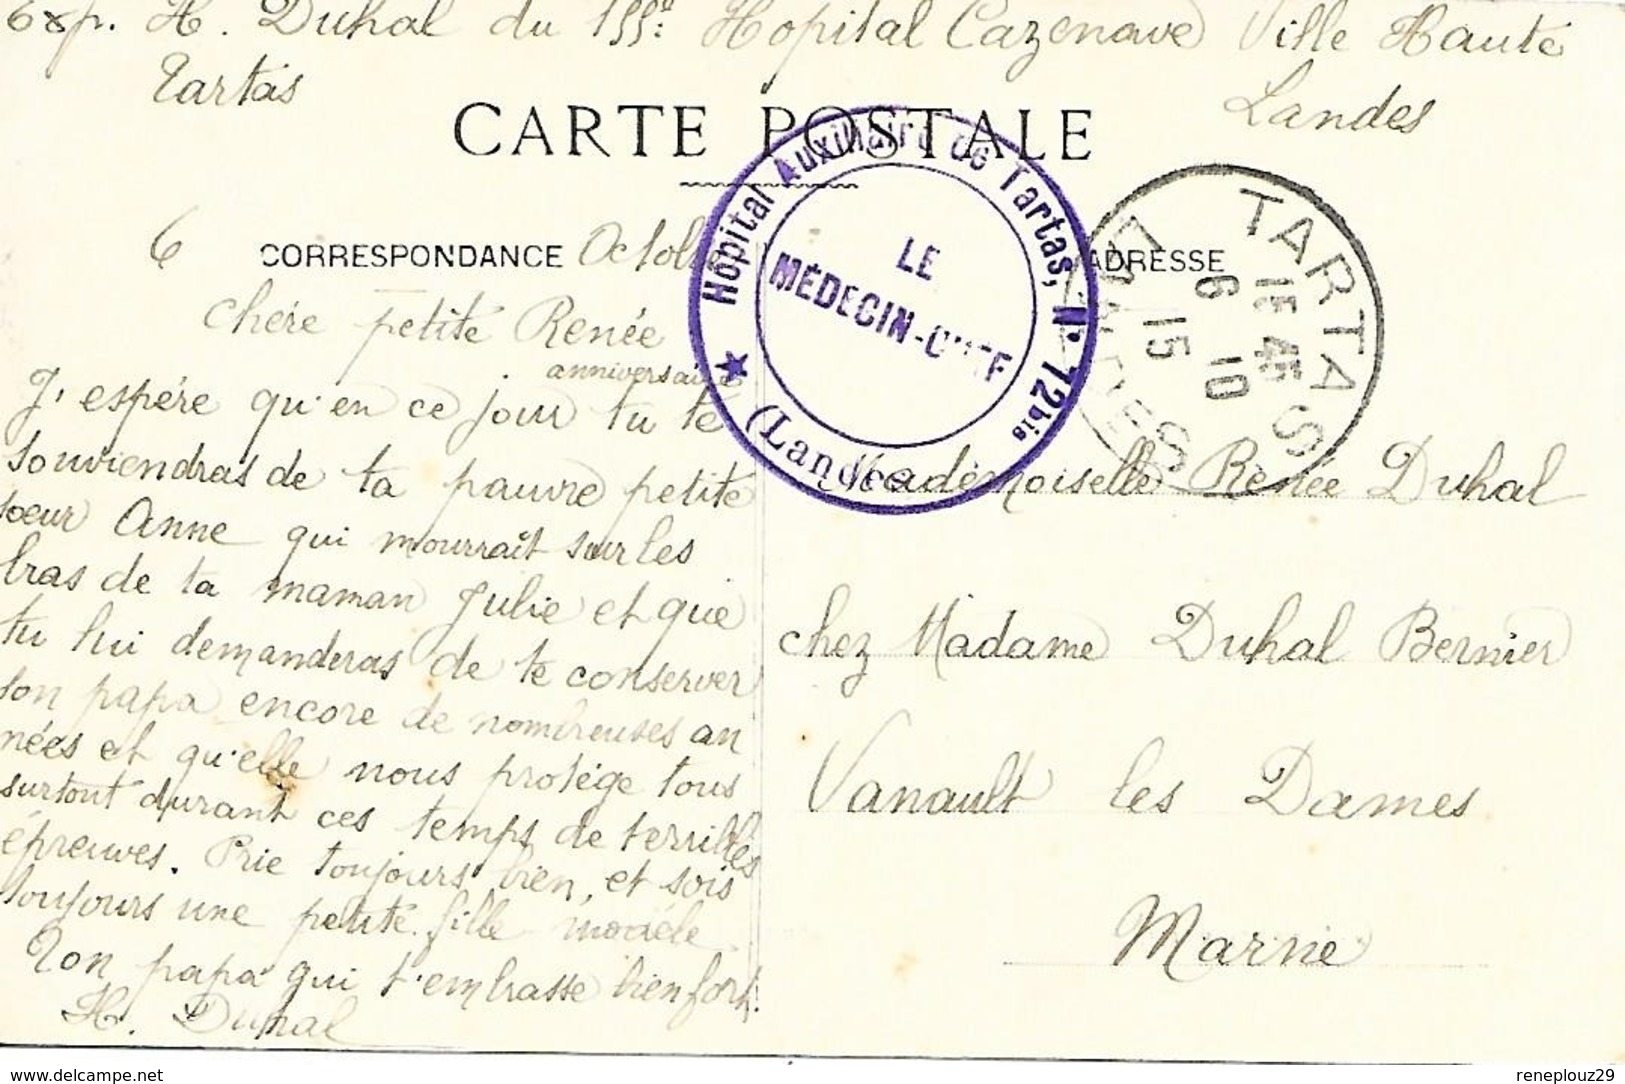 Exp. H. Duhal du 155e Hopital Cazenave Ville Haute
Tartas Landes
CARTE POSTALE
Hôpital Auxiliaire de Tartas, N° 72bis
(Landes)
LE
MÉDECIN-CHEF
TARTAS
15 45
6 10
15
LANDES
CORRESPONDANCE
ADRESSE
6 Octobre
chère petite Renée
anniversaire
J'espère qu'en ce jour tu te
souviendras de ta pauvre petite
soeur Anne qui mourrait sur les
bras de ta maman Julie et que
tu lui demanderas de te conserver
ton papa encore de nombreuses an
nées et qu'elle nous protège tous
surtout durant ces temps de terribles
épreuves. Prie toujours bien, et sois
toujours une petite fille modèle
Ton papa qui t'embrasse bien fort.
H. Duhal
Mademoiselle Renée Duhal
chez Madame Duhal Bernier
Vanault les Dames
Marne
delcampe.net
reneplouz29